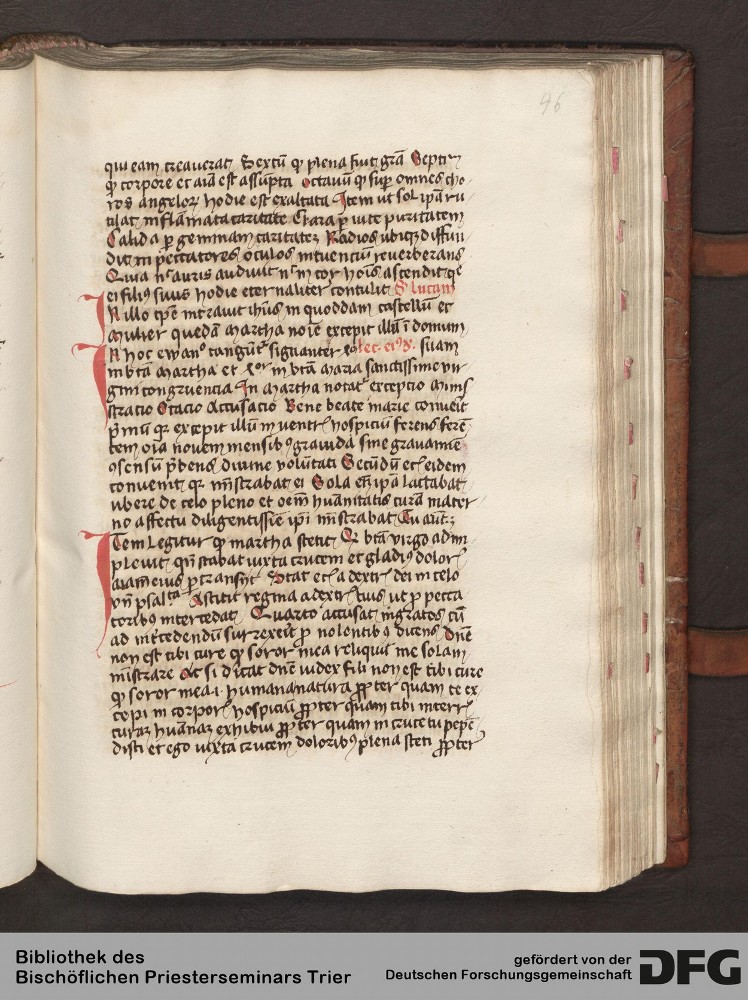 96
qui eam creauerat Sextū ꝙ plena fuit grā Septīͫ
ꝙ corpore et aīa est assūpta Octauū ꝙ suꝑ omnes cho
ros angeloꝝ hodie est exaltata Item ut sol ipā ru
tilat inflāmata caritate Clara ꝑ uite puritatem
Calida ꝑ geminam caritateʒ Radios ubiqʒ diffun
dit in peccatores oculos intuenciū reuerberans
Quia nͨ auris audiuit nͨ in cor hoīs ascendit qͤ
ei filiꝰ suus hodie eternaliter contulit S lucam
IN illo tp̄e intrauit ihūs in quoddam castellū et
mulier quedā Martha noīe excepit illū ī domum
IN hoc ewanͦ tangūtͬ siguanter suam
in btā Martha et in btā Maria sanctissime vir
gini congruencia In Martha notatͬ excepcio Mini
stracio Stacio Accusacio Bene beate marie conueīt
p̄mū qꝛ excepit illū in ventr hospiciū ferens ferē
tem oīa nouem mensibꝰ grauida sine grauamīe
ꝯsensū p̄bens diuine volūtati Secūdū etͥ eidem
conuenit qꝛ mīstrabat ei Sola eīͫ ipā lactabat
ubere de celo pleno et oēm hūanitatis curā mater
no affectu diligentissīe ipī mīstrabat
ITem Legitur ꝙ martha stetit btā virgo adim
pleuit qn̄ stabat iuxta crucem et gladiꝰ doloꝛ
aīam eius ꝑtransijt Stat etͥ a dextrͥ dei in celo
vn̄ psalͭᵃ Astitit regina a dextrͥ tuis ut ꝑ pecca
toribꝰ intercedat Quarto accusat ingratos cū
ad intͨedendū surrexerit ꝓ nolentibꝰ dicens Dn̄e
non est tibi cure ꝙ soror mea reliquit me solam
mīstrare Ac si dicat dn̄e iudex fili non est tibi cure
ꝙ soror mea .i. humana natura ꝓpter quam te ex
cepi in corporͥ hospiciū ꝓpter quam tibi
curaʒ hūanaʒ exhibui ꝓpter quam in cruce tu pepē
disti et ego iuxta crucem doloribꝰ plena steti ꝓpter
Bibliothek des
Bischöflichen Priesterseminars Trier
gefördert von der
Deutschen Forschungsgemeinschaft
DFG